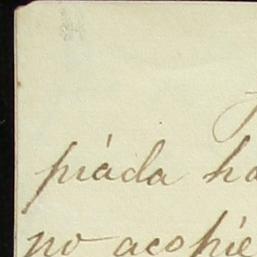 piáda ha
no acopie